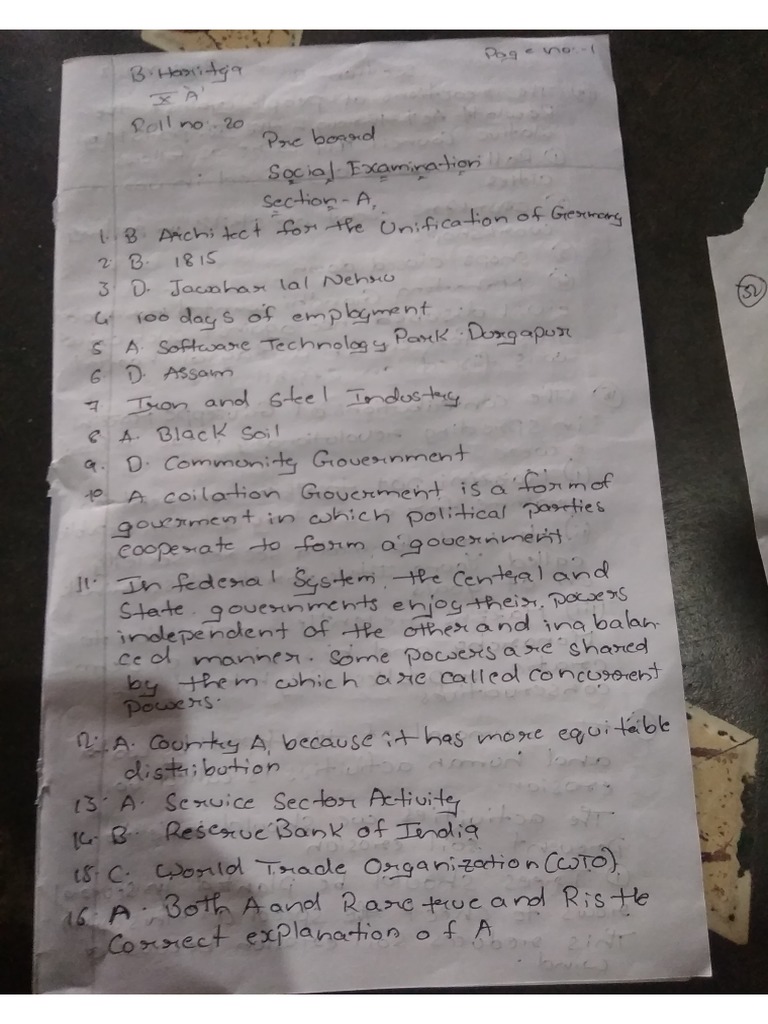 Page no:-1
B. Haritga
X 'A'
Roll no:. 20
Pre board
Social Examination
Section-A,
1. B. Architect for the Unification of Germany
2 B. 1815
3 D. Jawahar lal Nehru
4 100 days of employment
5 A. Software Technology Park. Durgapur
6 D. Assam
7 Iron and Steel Industry
8 A. Black Soil
9. D. Community Government
10 A coilation Goverment is a form of
goverment in which political parties
cooperate to form a government.
11. In federal System, the central and
State governments enjoy their powers
independent of the other and in a balan-
ced manner. Some powers are shared
by them which are called concurrent
powers.
12. A. Country A, because it has more equitable
distribution
13. A. Service Sector Activity
14. B. Reserve Bank of India
15. C. World Trade Organization (WTO).
16. A. Both A and R are true and R is the
Correct explanation of A
32